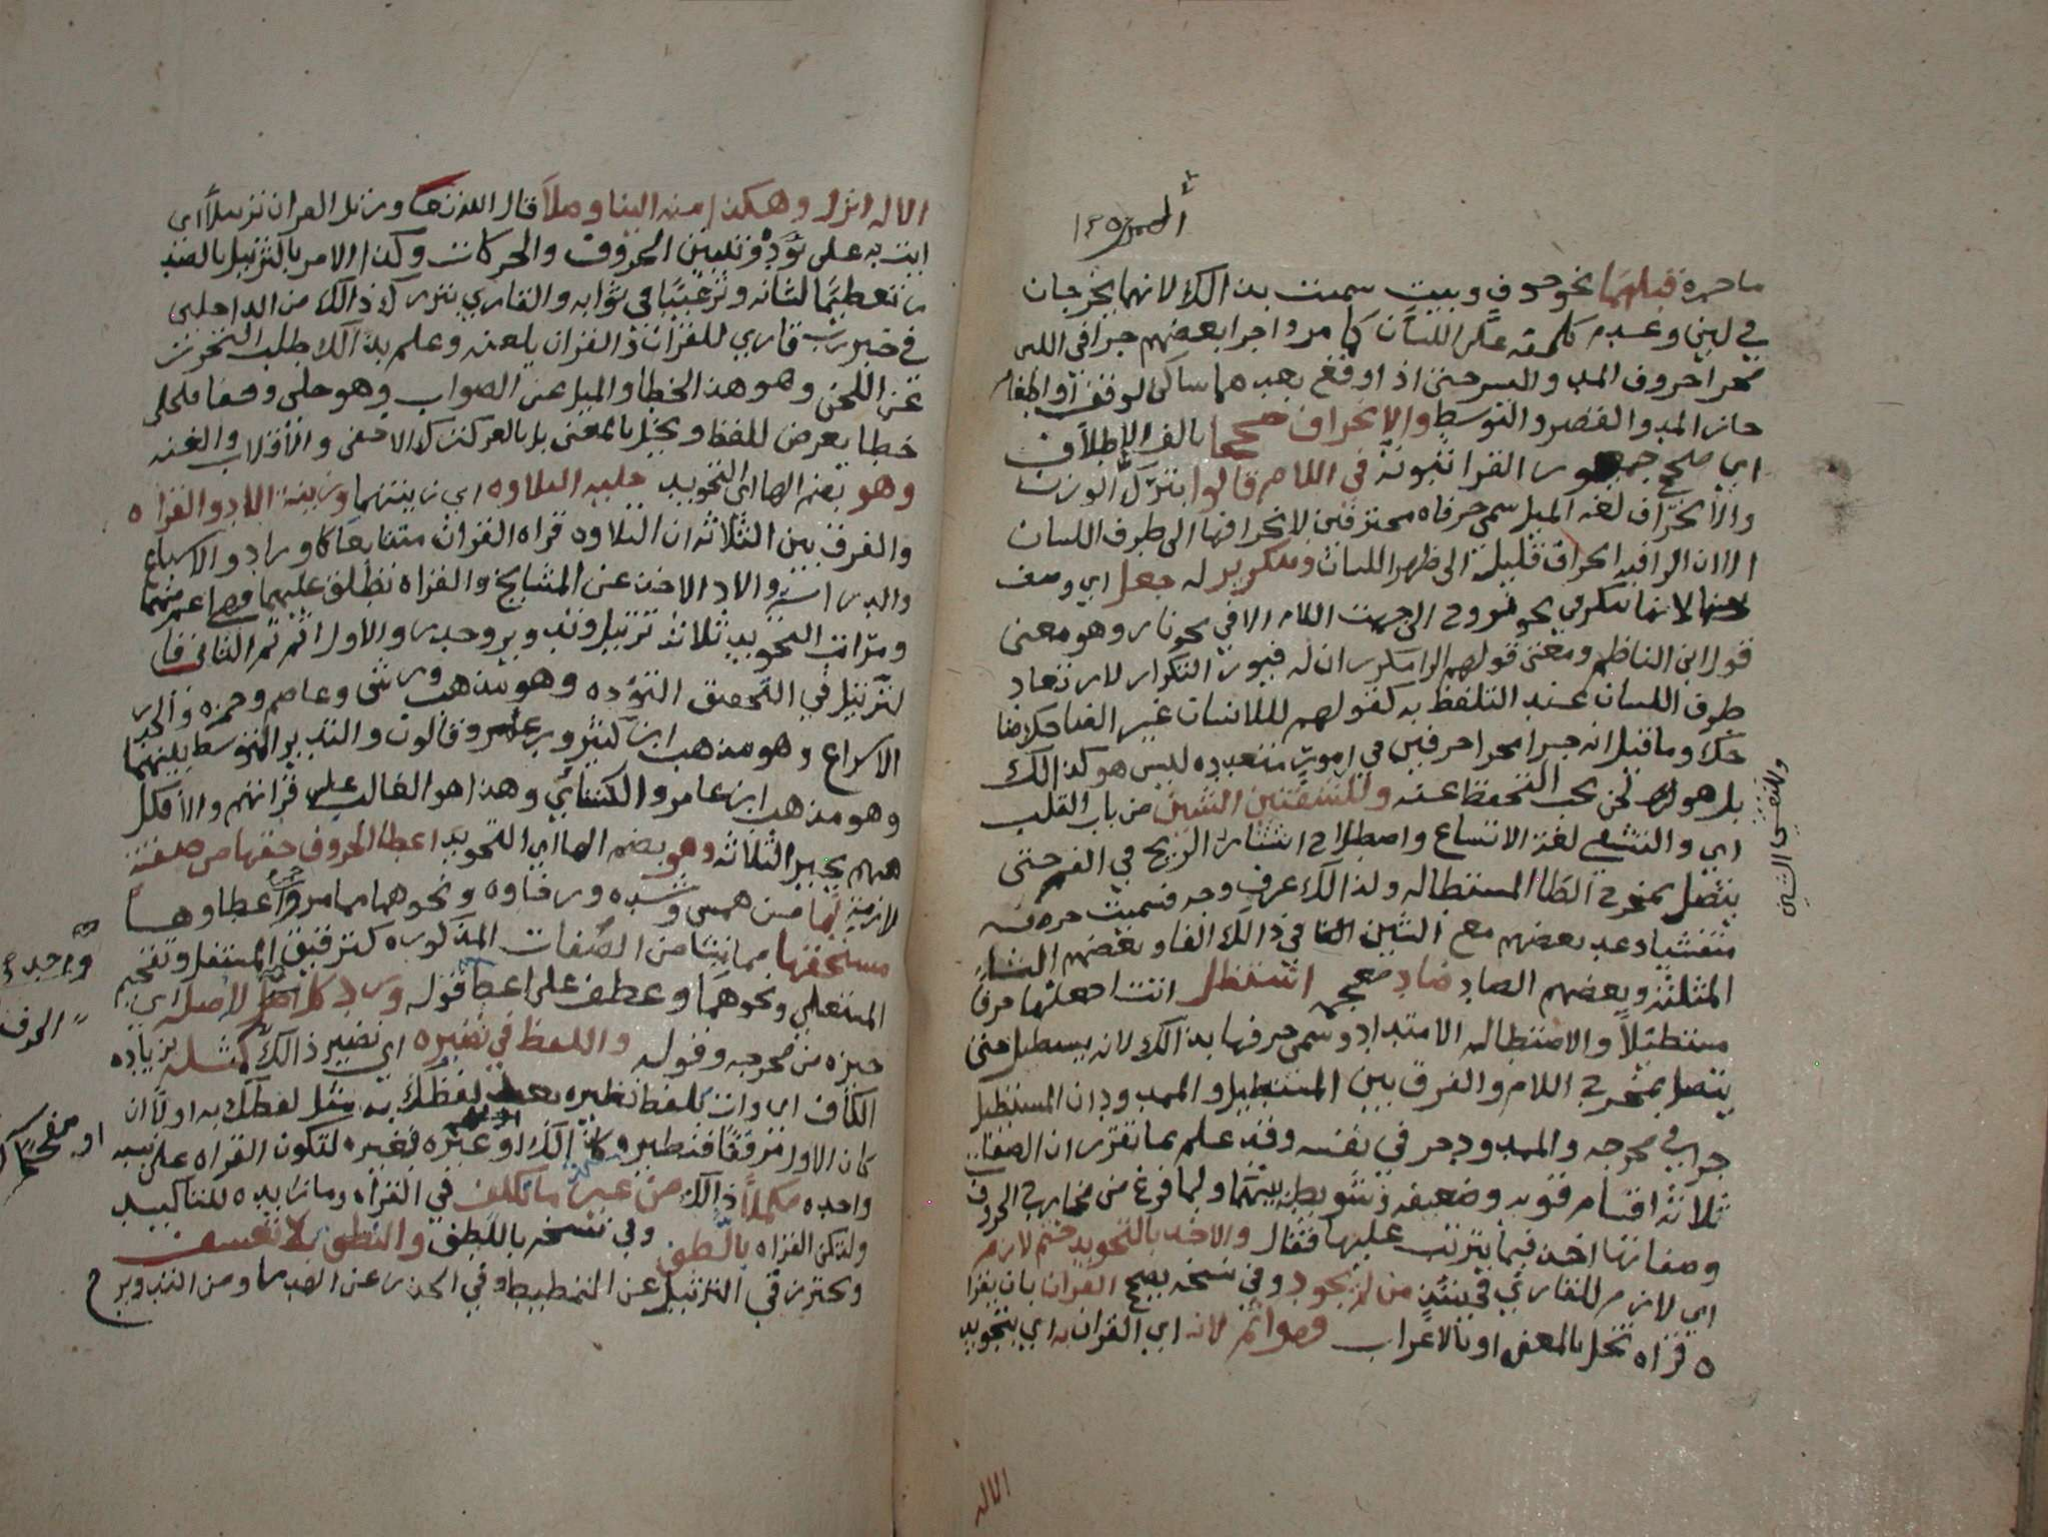 ما حره قبلهما نحو خوف وبيت سميت بذالك لانهما يخرجان
في لين وعدم كلفة على اللسان كما مر واجرا بعضهم حرافي اللين
مجرا حروف المد واليسر حتى اذا وقع بعدهما ساكن لوقف او ادغام
جاز المد والقصر والتوسط والانحراف صححا بالف الاطلاق
اي صحح جمهور القرا ثبوته في اللام قالوا بترك الوزن
والانحراف لغة الميل سمى حرفاه منحرفين لانحرافها الى طرف اللسان
الا ان الرا فيه انحراف قليلة الى ظهر اللسان وبتكرير له جعل اي وصف
لانها تتكرر في نحو الى جهت اللام الا في نحو نار وهو معنى
قول ابن الناظم ومعنى قولهم الرا مكرر ان له قبول التكرار لارتعاد
طرف اللسان عند التلفظ به كقولهم للانسان غير الضاحك ضا
حك وما قيل انه جرا مجرا حرفين في امور متعدده ليس هو كذالك
بل هو لحن يجب التحفظ عنه وللتفشين الشين من باب القلب
اي والتفشي لغة الاتساع واصطلاح انتشار الريح في الفم حتى
يتصل بمخرج الظا المستطاله ولذالك عرف وجه تسميت حرفه
متفشيا وعد بعضهم مع الشين في ذالك الفا وبعضهم الثا
المثلثة وبعضهم الصاد ضاد معجمه استطل انت اجعلها حرفا
مستطيلا والاستطاله الامتداد وسمى حرفها بذالك لانه يستطيل حتى
يتصل بمخرج اللام والفرق بين المستطيل والممدود ان المستطيل
جرا في مخرجه والممدود جر في نفسه وقد علم بما تقرر ان الصفات
ثلاثة اقسام قويه وضعيفه ومتوسطه بينهما ولما فرغ من مخارج الحروف
وصفاتها اخذ فيما يترتب عليها فقال والاخذ بالتجويد حتم لازم
اي لازم للقاري من لم يجود وفي نسخه يصحح القران بان يقرا
ه قراه تخل بالمعنى او بالاعراب فهو اثم لانه اي القران به اي بتجويد
وللتفشي الشين
الاله
الاله انزلا وهكذا منه الينا وصلا قال الله تعا ورتل القران ترتيلا اى
ايت به على تؤدة وتبيين الحروف والحركات وكذا الامر بالترتيل بالمصد
ر تعظيما لشانه وترغيبا في ثوابه والقاري بترك ذالك من الداخلين
في خبر رب قاري للقران والقران يلعنه وعلم بذالك طلب التحرز
عن اللحن وهو هنا الخطا والميل عن الصواب وهو جلي وخفي فالجلي
خطا يعرض للفظ ويخل بالمعنى بل بالعرف كترك الاخفى والاقلاب والغنه
وهو بضم الها اى التجويد حليه التلاوه اي زينتها وزينة الادا والقراه
والفرق بين الثلاثه ان التلاوه قراه القران متتابعا كاوراد والاسباع
والدراسة والادا الاخذ عن المشايخ والقراه تطلق عليهما فهي اعم منهما
ومراتب التجويد ثلاثة ترتيل وتدوير وحدر والاول اتم ثم الثاني فا
لترتيل في التحقيق التؤده وهو مذهب ورش وعاصم وحمزه والحدر
الاسراع وهو مذهب ابن كثير وابي عمرو وقالون والتدوير التوسط بينهما
وهو مذهب ابن عامر والكسائي وهذا هو الغالب على قراتهم والا فكل
منهم يجيز الثلاثه وهو بضم الها اي التجويد اعطا الحروف حقها من صفة
لازمة لها من همس وشده ورخاوه ونحوهما مما مر واعطاوها
مستحقها مما ينشا من الصفات المذكوره كترقيق المستفل وتفخيم
المستعلي ونحوهما وعطف على اعطا قوله ورد كل احد لاصله اي
حيزه من مخرجه وقوله واللفظ في نظيره اي نظير ذالك كمثله بزياده
الكاف اى وان يلفظ نظيره بعد لفظك به مثل لفظك به اولا ان
كان الاول مرققا فنظيره كذالك او غيره فغيره لتكون القراه على نسبه
واحده مكملا ذالك من غير ما تكلف في القراه وما زايده للتاكيد
ولتكن القراه بالطف وفي نسخه باللطف والنطق بلا تعسف
ويحترز في الترتيل عن التمطيط وفي الحدر عن الادماج ومن التدوير ح
واحد
الحرف
او مفخما